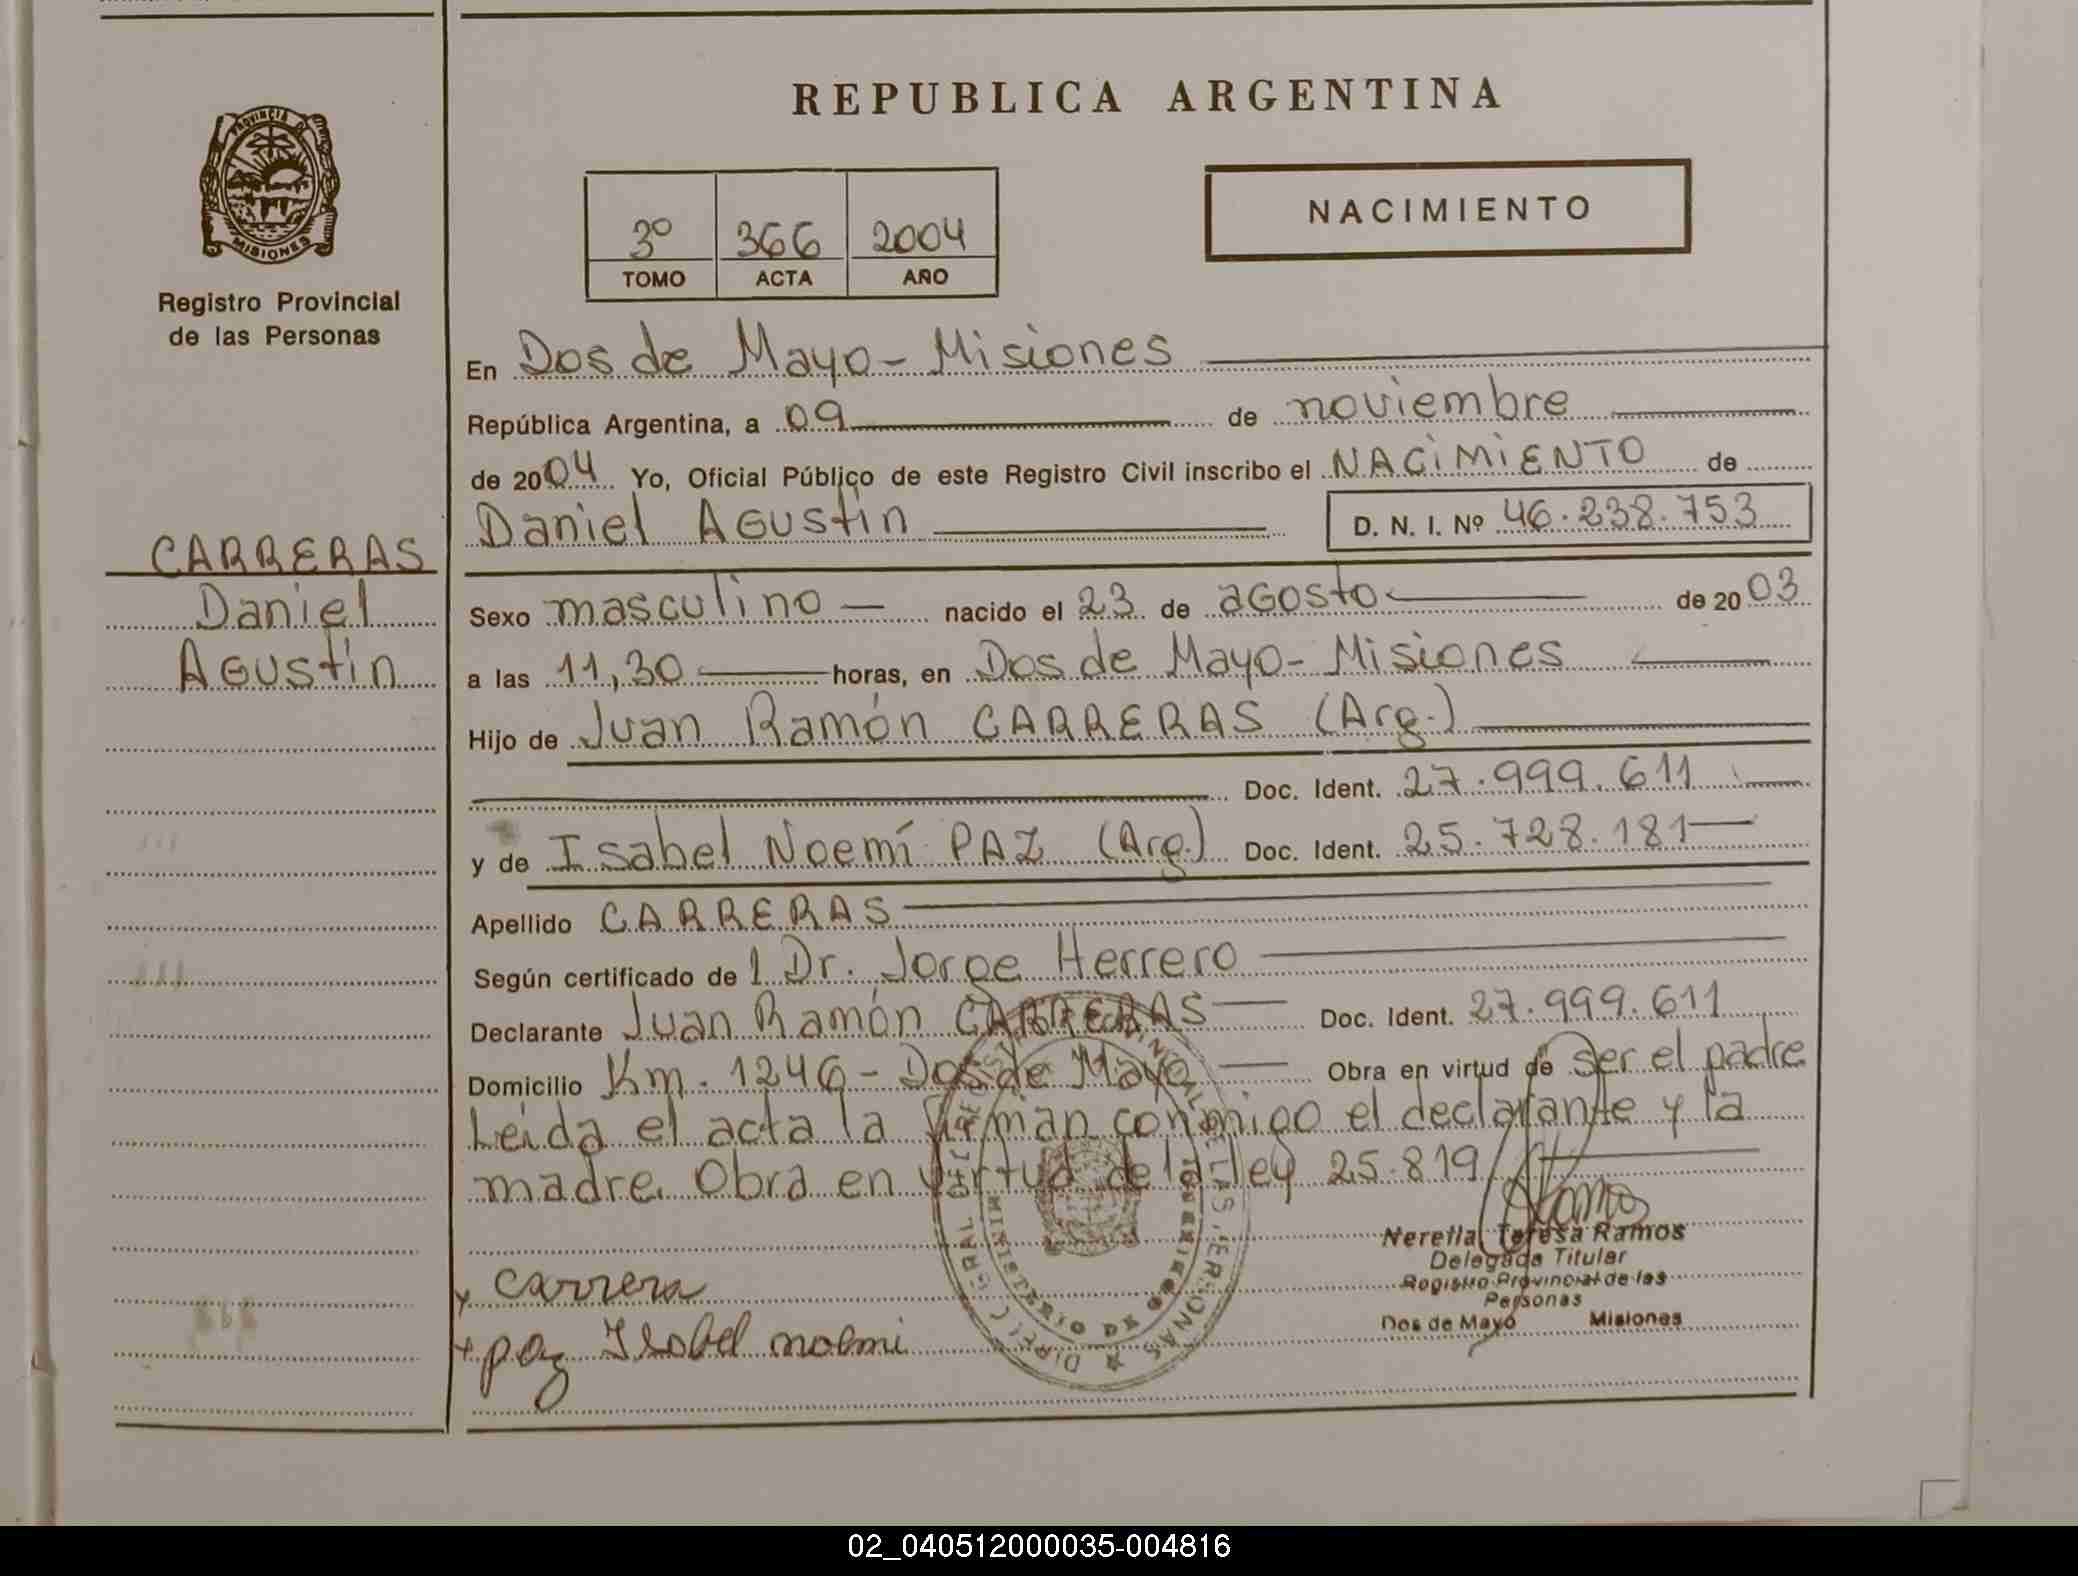 REPUBLICA ARGENTINA
PROVINCIA DE
MISIONES
Registro Provincial
de las Personas
NACIMIENTO
3º 366 2004
TOMO ACTA AÑO
En Dos de Mayo - Misiones
República Argentina, a 09 de noviembre
de 2004 Yo, Oficial Público de este Registro Civil inscribo el NACIMIENTO de
Daniel Agustín D. N. I. Nº 46.238.753
CARRERAS
Daniel
Agustín
Sexo masculino nacido el 23 de agosto de 2003
a las 11,30 horas, en Dos de Mayo - Misiones
Hijo de Juan Ramón CARRERAS (Arg.)
Doc. Ident. 27.999.611
y de Isabel Noemí PAZ (Arg.) Doc. Ident. 25.728.181
Apellido CARRERAS
Según certificado de 1 Dr. Jorge Herrero
Declarante Juan Ramón CARRERAS Doc. Ident. 27.999.611
Domicilio Km. 1246 - Dos de Mayo Obra en virtud de Ser el padre
Leida el acta la firman conmigo el declarante y la
madre. Obra en virtud de la ley 25.819
Teresa Ramos
Delegada Titular
Registro Provincial de las
Personas
Dos de Mayo Misiones
x carrera
x paz Isabel noemi
02_040512000035-004816